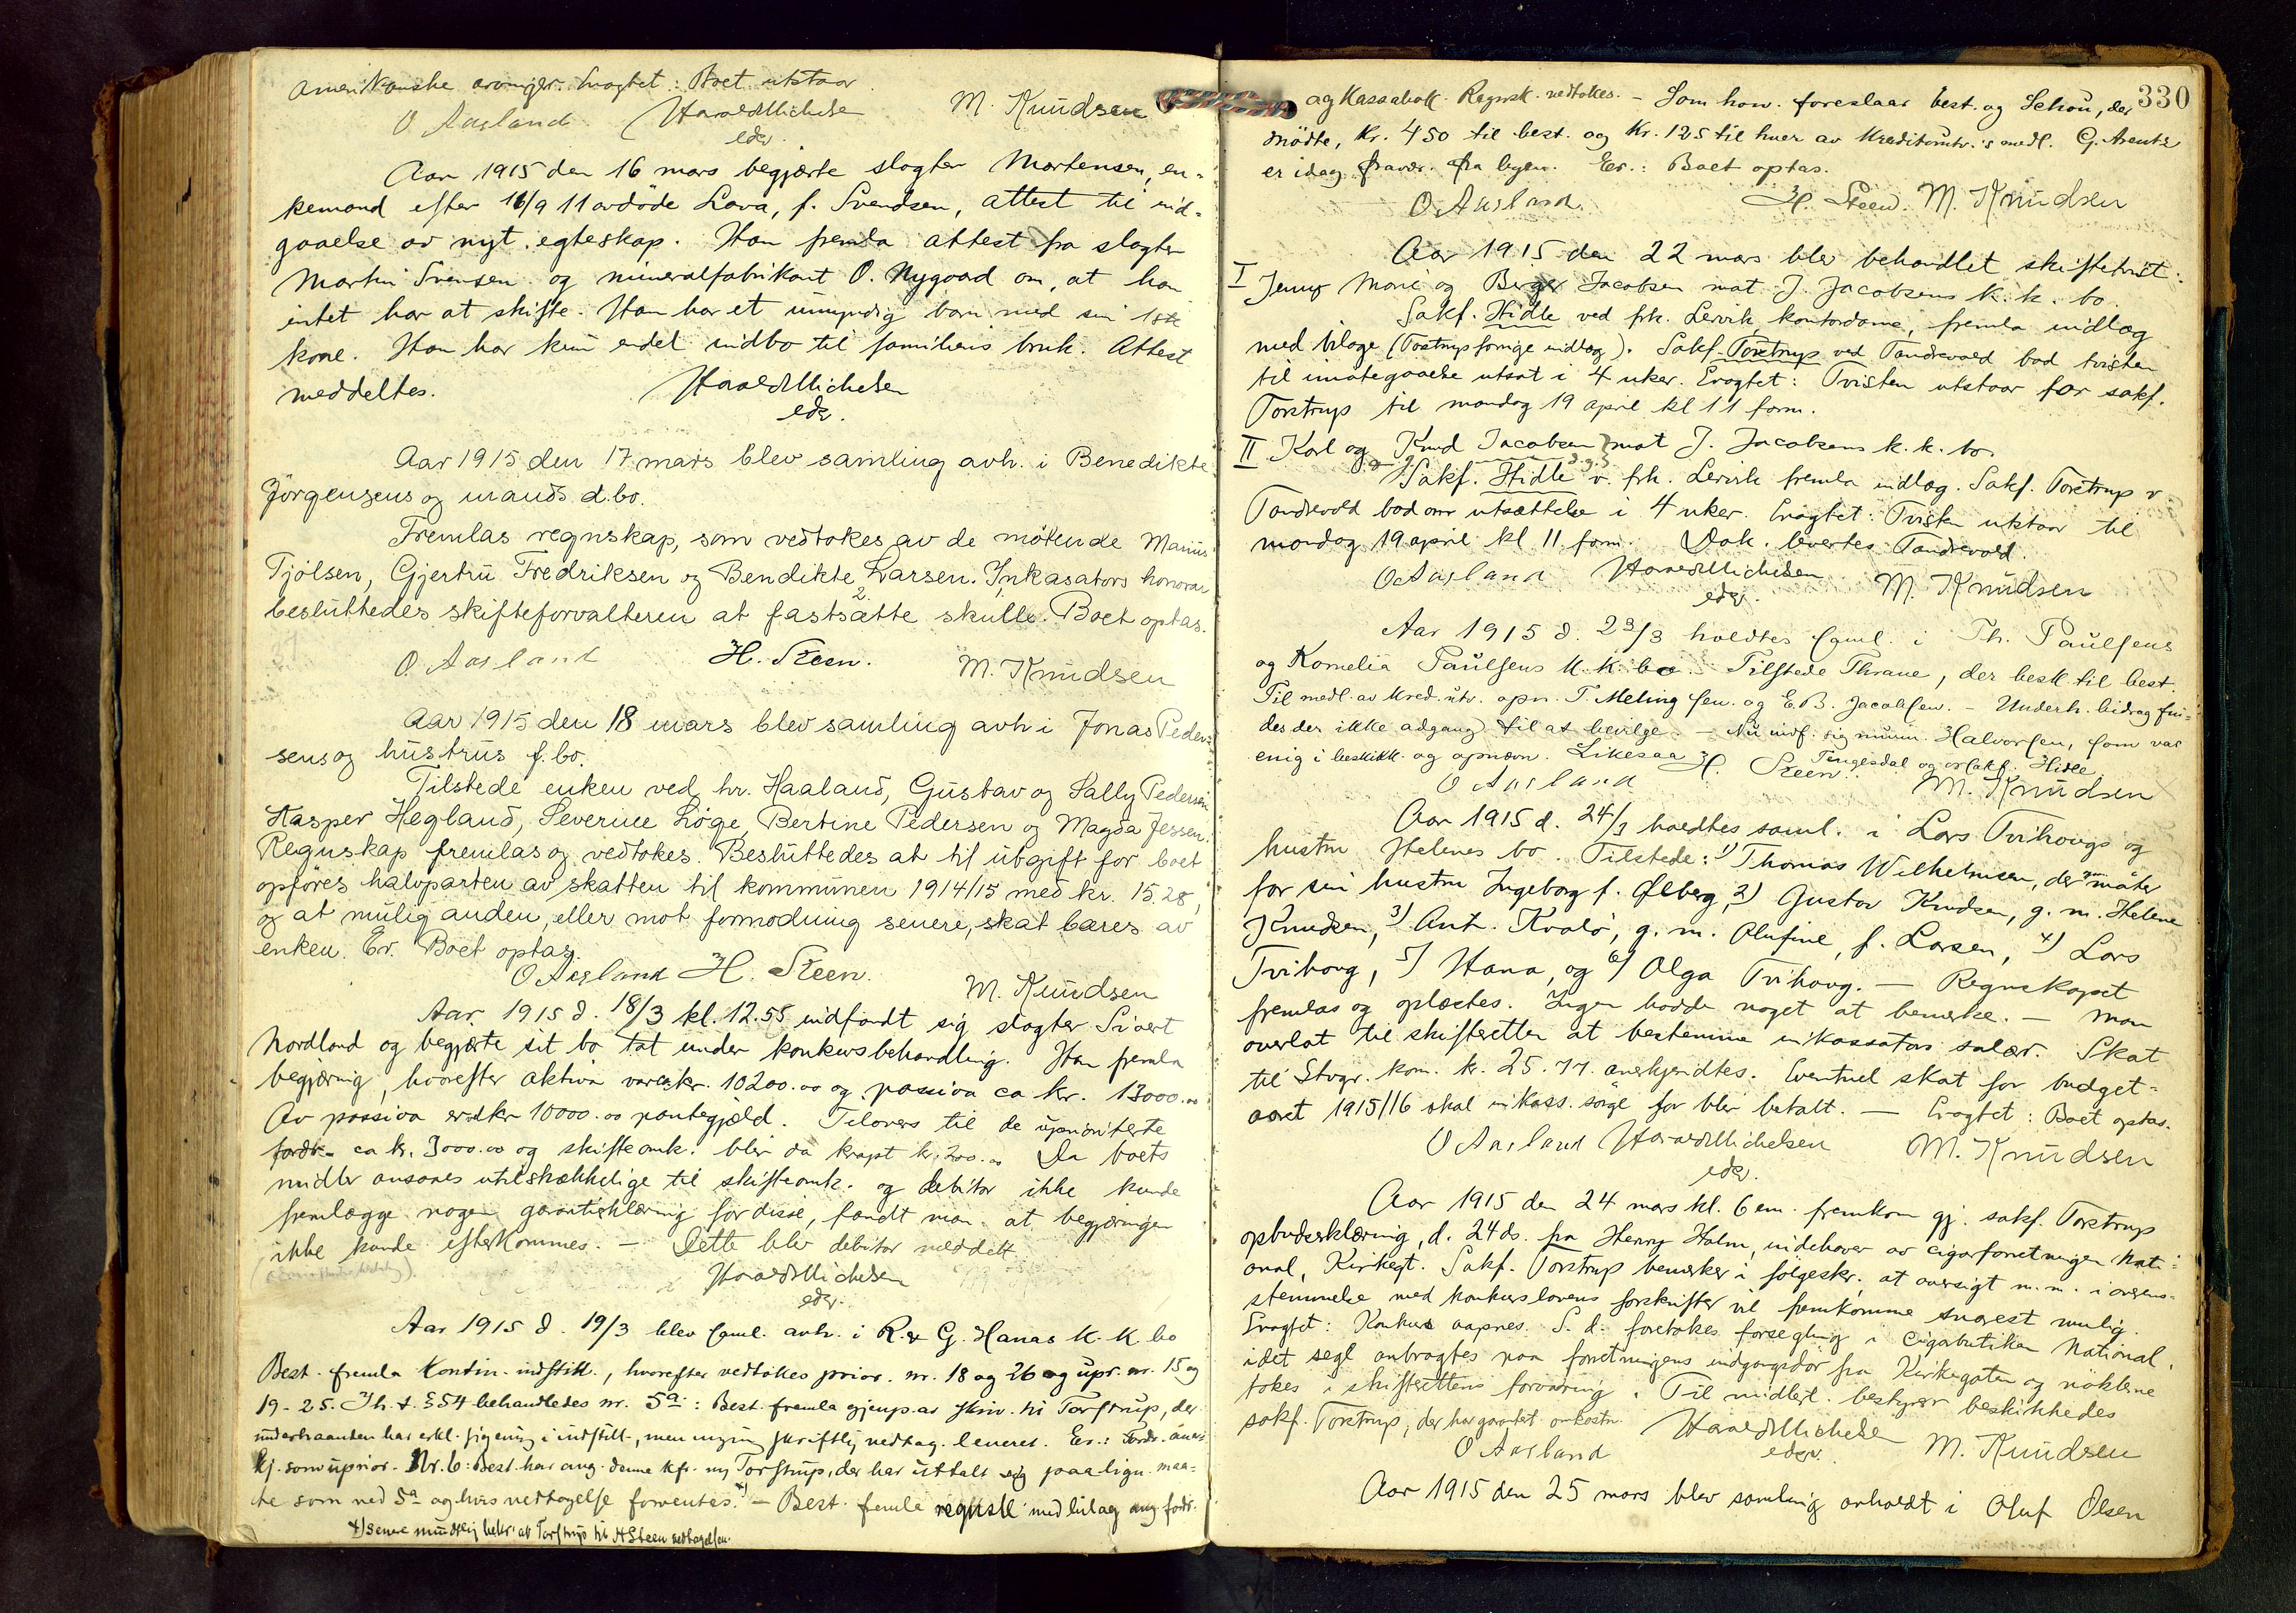 amerikanske arvinger. Eragtet: Boet utstaar.
O Aasland HaraldMichelsen M. Knudsen
edsv.
Aar 1915 den 16 mars begjærte slagter Mortensen, en-
kemand efter 16/9 11 avdöde Lava, f. Svendsen, attest til ind-
gaaelse av nyt egteskap. Han fremla attest fra slagter
Martin Svensen og mineralfabrikant O. Nygaard om, at han
intet har at skifte. Han har et umyndig barn med sin 1ste
kone. Han har kun endel indbo til familiens bruk. Attest
meddeltes. HaraldMichelsen
edsv.
Aar 1915 den 17 mars blev samling avh. i Benedikte
Jörgensens og mands d.bo.
Fremlas regnskap, som vedtokes av de mötende Marius
Tjölsen, Gjertru Fredriksen og Bendikte Larsen. Inkasators honorar
besluttedes skifteforvalteren at fastsætte skulle. Boet optas.
O. Aasland H. Steen. M. Knudsen
Aar 1915 den 18 mars blev samling avh i Jonas Peder-
sens og hustrus f.bo.
Tilstede enken ved hr. Haaland, Gustav og Sally Pedersen
Kasper Hegland, Severine Löge, Bertine Pedersen og Magda Jessen.
Regnskap fremlas og vedtokes. Besluttedes at til utgift for boet
opföres halvparten av skatten til kommunen 1914/15 med kr. 15.28,
og at mulig anden, eller mot formodning senere, skat bæres av
enken. Er. Boet optas.
O Aasland H. Steen. M. Knudsen
Aar 1915 d. 18/3 kl. 12.55 indfandt sig slagter Sivert
Nordland og begjærte sit bo tat under konkursbehandling. Han fremla
begjæring, hvorefter aktiva var ca kr. 10200.00 og passiva ca kr. 13000.00
Av passiva er kr 10000.00 pantegjæld. Tilovers til de uprioriterte
fordr. ca kr. 3000.00 og skifteomk. blir da knapt kr. 200.00 Da boets
midler ansaaes utilstrækkelige til skifteomk. og debitor ikke kunde
fremlægge nogen garantierklæring for disse, fandt man at begjæringen
ikke kunde efterkommes. — Dette blev debitor meddelt
HaraldMichelsen
edsv.
Aar 1915 d. 19/3 blev saml. avh. i R. & G. Hanas K. K. bo
Best. fremla kontin. indstill., hvorefter vedtokes prior. nr. 18 og 26 og upr. nr. 15 og
19-25. I h. t. § 54 behandledes nr. 5a: Best. fremla gjenp. av skriv. til Torstrup, der
underhaanden har erkl. sig enig i indstill., men ingen skriftlig vedtag. leveret. Er.: Fordr. aner-
kj. som uprior. Nr. 6: Best. har ang. denne kfr. Torstrup, der har uttalt sig paa lign. maa-
te som ved 5a og hvis vedtagelse forventes. x) — Best. fremla regnsk med bilag ang fordr.
x) Senere mundtlig bekr. av Torstrup til H Steen vedtagelsen.
330
og Kassabok. Regnsk. vedtokes. — Som hon. foreslaar best. og Schou, der
mödte, kr. 450 til best. og kr. 125 til hver av Kreditorutv.'s medl. G. Arentz
er idag fravær. fra byen. Er.: Boet optas.
O Aasland. H. Steen. M. Knudsen
Aar 1915 den 22 mars blev behandlet skiftetvist:
I Jenny Marie og Berger Jacobsen mot J. Jacobsens k. k. bo.
Sakf. Hidle ved frk. Lervik, kontordame, fremla indlæg
med bilage (Torstrups forrige indlæg). Sakf. Torstrup ved Tandrevold bad tvisten
til imøtegaaelse utsat i 4 uker. Eragtet: Tvisten utstaar for sakf.
Torstrup til mandag 19 april kl 11 form.
II Karl og Knud Jacobsen mot J. Jacobsens k. k. bo.
Sakf. Hidle v. frk. Lervik fremla indlæg. Sakf. Torstrup v.
Tandrevold bad om utsættelse i 4 uker. Eragtet: Tvisten utstaar til
mandag 19 april kl 11 form. Dok. levertes Tandrevold.
O Aasland HaraldMichelsen M. Knudsen
edsv.
Aar 1915 d. 23/3 holdtes saml. i Th. Paulsens
og Kornelia Paulsens K. K. bo. Tilstede Thrane, der besk. til best.
Til medl. av kred.utv. opn. T. Meling sen. og E. B. Jacobsen. — Underh. bidrag fin-
des der ikke adgang til at bevilge. — Nu indf. sig murm. Halvorsen, som var
enig i beskikk. og opnævn. Likesaa Tengesdal og orsakf. Hidle
O Aasland H. Steen. M. Knudsen
Aar 1915 d. 24/3 holdtes saml. i Lars Tvihougs og
hustru Helenes bo. Tilstede: 1) Thomas Wilhelmsen, der möter
for sin hustru Ingeborg f. Ølberg, 2) Gustav Knudsen, g. m. Helene
Knudsen, 3) Ant. Kvalö, g. m. Olufine, f. Larsen, 4) Lars
Tvihoug, 5) Hana, og 6) Olga Tvihoug. — Regnskapet
fremlas og oplæstes. Ingen hadde noget at bemerke. — Man
overlot til skifteretten at bestemme inkassators salær. Skat
til Stvgr. kom. kr. 25.77 anerkjendtes. Eventuel skat for budget-
aaret 1915/16 skal inkass. sörge for blir betalt. — Eragtet: Boet optas.
O Aasland HaraldMichelsen M. Knudsen
edsv.
Aar 1915 den 24 mars kl. 6 em. fremkom gj. sakf. Torstrup
opbudserklæring, d. 24 ds. fra Henry Holm, indehaver av cigarforretningen Nati-
onal, Kirkegt. Sakf. Torstrup bemerker i følgeskr. at oversigt m. m. i overens-
stemmelse med konkurslovens forskrifter vil fremkomme snarest mulig.
Eragtet: Konkurs aapnes. S. d. foretokes forsegling i cigarbutiken National,
idet segl anbragtes paa forretningens indgangsdör fra Kirkegaten og nöklene
tokes i skifterettens forvaring. Til midlert. bestyrer beskikkedes
sakf. Torstrup, der har garantet omkostn. HaraldMichelsen
O Aasland edsv. M. Knudsen
Aar 1915 den 25 mars blev samling avholdt i Oluf Olsen